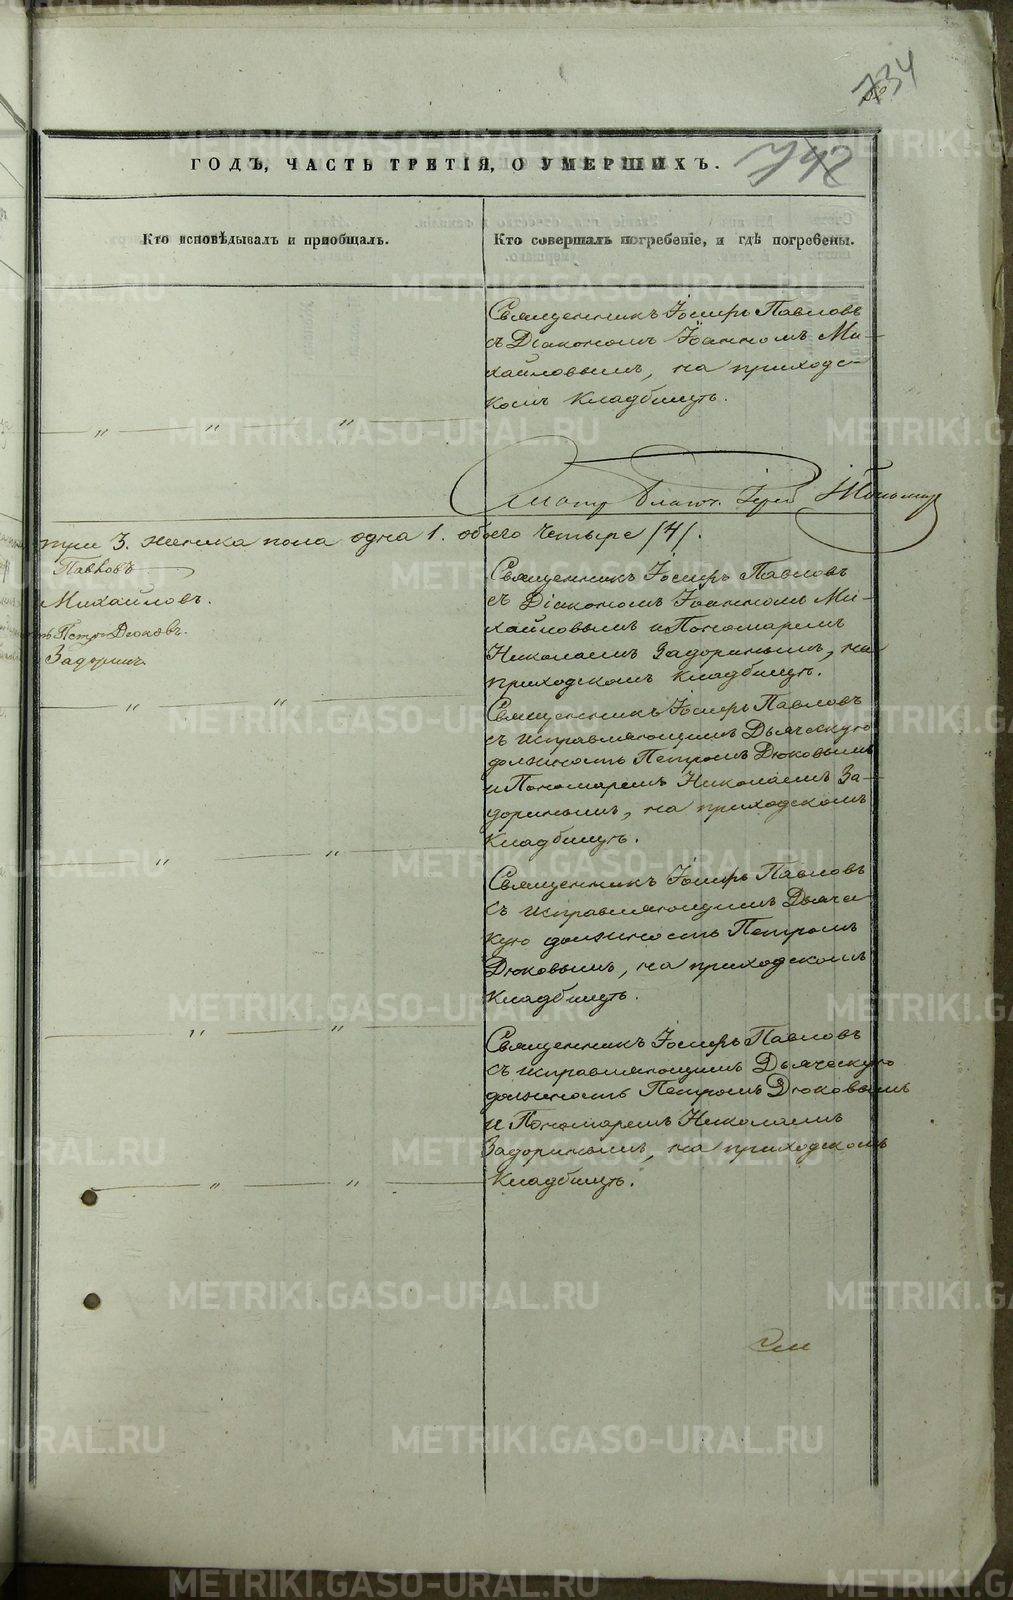 734
742
ГОДЪ, ЧАСТЬ ТРЕТІЯ, О УМЕРШИХЪ.
Кто исповѣдывалъ и пріобщалъ.
Кто совершалъ погребеніе, и гдѣ погребены.
Священникъ Іосифъ Павловъ
съ Діакономъ Іоанномъ Ми-
хайловымъ, на приходс-
комъ кладбищѣ.
Смотр. Благоч. Іерей
три 3. женска пола одна 1. обоего четыре /4/.
Павловъ
Михайловъ.
Петръ Дюковъ.
Задоринъ.
Священникъ Іосифъ Павловъ
съ Діакономъ Іоанномъ Ми-
хайловымъ и Пономаремъ
Николаемъ Задоринымъ, на
приходскомъ кладбищѣ.
Священникъ Іосифъ Павловъ
съ исправляющимъ Дьяческую
должность Петромъ Дюковымъ
и Пономаремъ Николаемъ За-
доринымъ, на приходскомъ
кладбищѣ.
Священникъ Іосифъ Павловъ
съ исправляющимъ Дьячес-
кую должность Петромъ
Дюковымъ, на приходскомъ
кладбищѣ.
Священникъ Іосифъ Павловъ
съ исправляющимъ Дьяческую
должность Петромъ Дюковымъ
и Пономаремъ Николаемъ
Задоринымъ, на приходскомъ
кладбищѣ.
METRIKI.GASO-URAL.RU